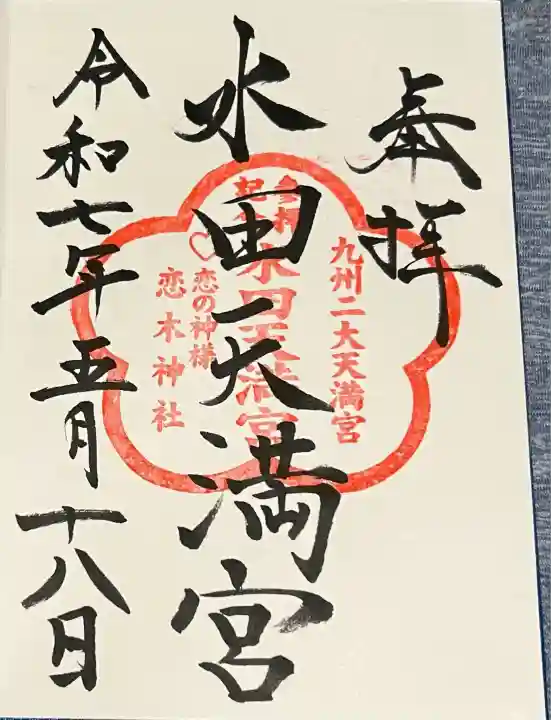 奉拝
九州二大天満宮
水田天満宮
参拝
記念
水田天満宮
♡恋の神様
恋木神社
令和七年五月十八日